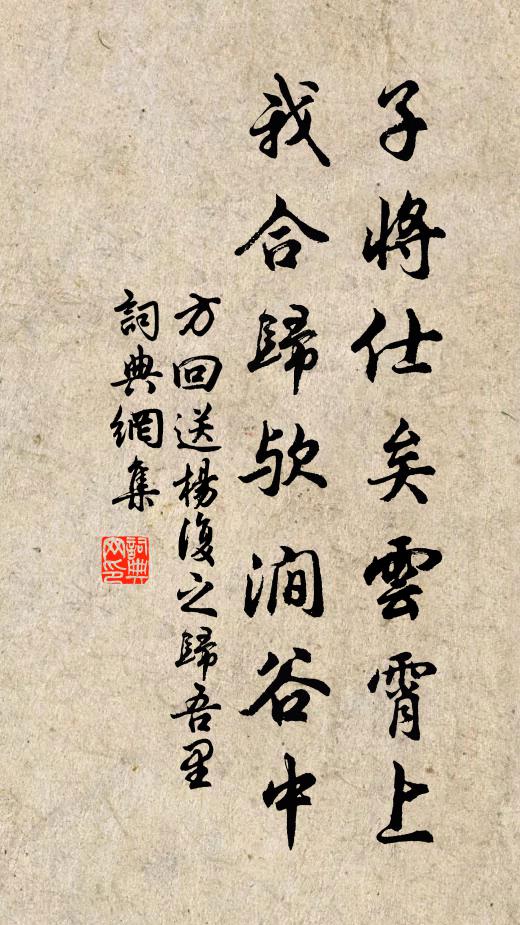 子將仕矣雲霄上
我合歸欤澗谷中
方回送楊復之歸吾里
詞典網集
詞典网印